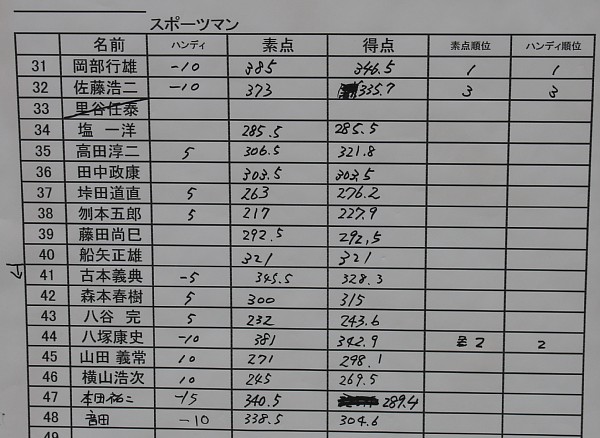 スポーツマン
名前 ハンディ 素点 得点 素点順位 ハンディ順位
31 岡部行雄 -10 385 346.5 1 1
32 佐藤浩二 -10 373 335.7 3 3
33 里谷任泰
34 塩 一洋 285.5 285.5
35 高田淳二 5 306.5 321.8
36 田中政康 303.5 303.5
37 垰田道直 5 263 276.2
38 刎本五郎 5 217 227.9
39 藤田尚巳 292.5 292.5
40 船矢正雄 321 321
41 古本義典 -5 345.5 328.3
42 森本春樹 5 300 315
43 八谷 完 5 232 243.6
44 八塚康史 -10 381 342.9 2 2
45 山田 義常 10 271 298.1
46 横山浩次 10 245 269.5
47 本田祐二 -15 340.5 289.4
48 音田 -10 338.5 304.6
49